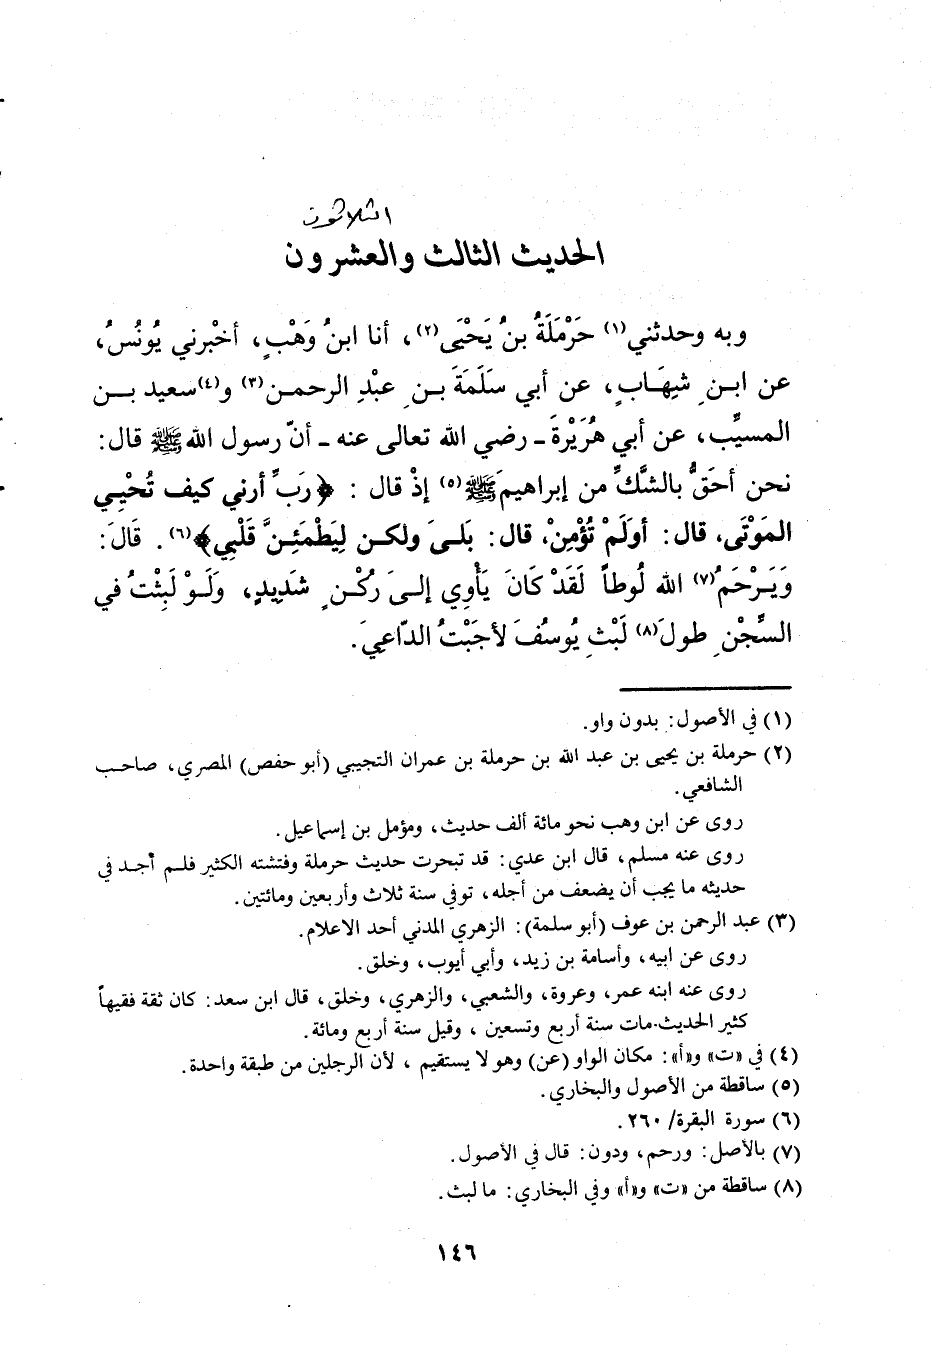 الثلاثون
الحديث الثالث والعشرون
وبه وحدثني(١) حَرْمَلَةُ بنُ يَحْيَى(٢)، أنا ابنُ وَهْبٍ، أخبْرني يُونُسُ،
عن ابنِ شِهَابٍ، عن أبي سَلَمَةَ بنِ عبْدِ الرحمن(٣) و(٤)سعيد بن
المسيِّب، عن أبي هُرَيْرةَ ـ رضي الله تعالى عنه ـ أنّ رسول الله ﷺ قال:
نحن أحَقُّ بالشَّكِّ من إبراهيمَ ﷺ(٥) إذْ قال : ﴿رَبِّ أرني كيف تُحْيِي
المَوْتَى، قال: أوَلَمْ تُؤْمِنْ، قال: بَلىَ ولكن لِيَطْمَئِنَّ قَلْبِي﴾(٦). قَالَ:
وَيَرْحَمُ(٧) الله لُوطاً لَقَدْ كَانَ يَأْوِي إلىَ رُكْنٍ شَدِيدٍ، وَلَوْ لَبِثْتُ في
السِّجْنِ طولَ(٨) لَبْثِ يُوسُفَ لأجَبْتُ الدّاعِيَ.
(١) في الأصول: بدون واو.
(٢) حرملة بن يحيى بن عبد الله بن حرملة بن عمران التجيبي (أبو حفص) المصري، صاحب
الشافعي.
روى عن ابن وهب نحو مائة ألف حديث، ومؤمل بن إسماعيل.
روى عنه مسلم، قال ابن عدي: قد تبحرت حديث حرملة وفتشته الكثير فلم أجد في
حديثه ما يجب أن يضعف من أجله، توفي سنة ثلاث وأربعين ومائتين.
(٣) عبد الرحمن بن عوف (أبو سلمة): الزهري المدني أحد الاعلام.
روى عن ابيه، وأسامة بن زيد، وأبي أيوب، وخلق.
روى عنه ابنه عمر، وعروة، والشعبي، والزهري، وخلق، قال ابن سعد: كان ثقة فقيهاً
كثير الحديث. مات سنة أربع وتسعين ، وقيل سنة أربع ومائة.
(٤) في «ت» و«أ»: مكان الواو (عن) وهو لا يستقيم ، لأن الرجلين من طبقة واحدة.
(٥) ساقطة من الأصول والبخاري.
(٦) سورة البقرة/ ٢٦٠.
(٧) بالأصل: ورحم، ودون: قال في الأصول.
(٨) ساقطة من «ت» و«أ» وفي البخاري: ما لبث.
١٤٦